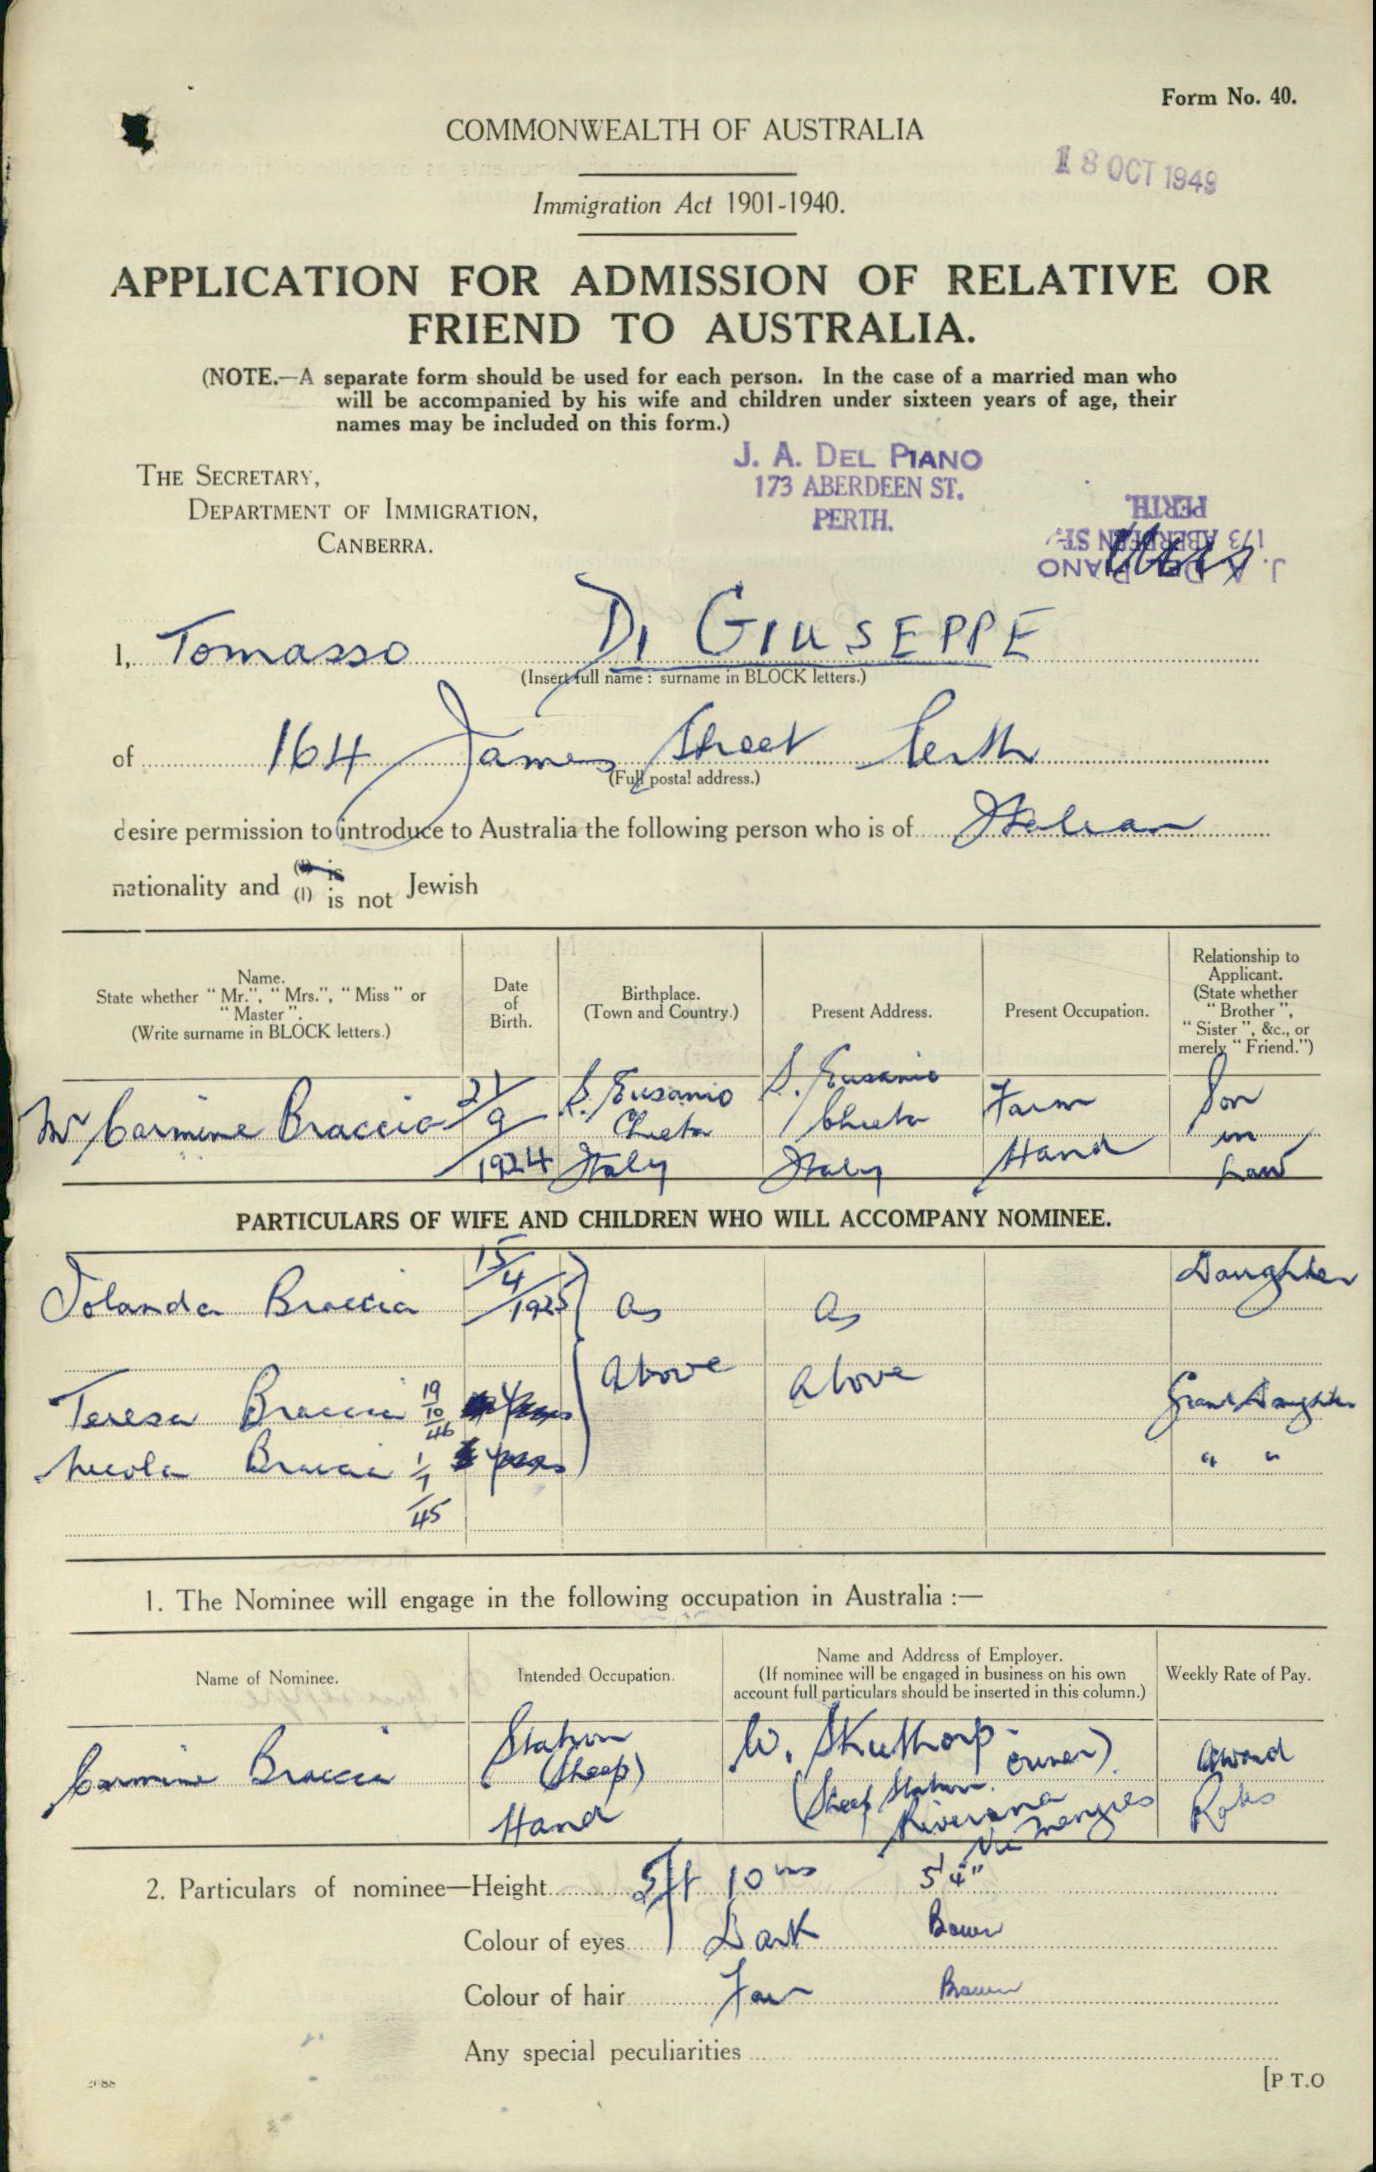 Form No. 40.
COMMONWEALTH OF AUSTRALIA
18 OCT 1949
Immigration Act 1901-1940.
APPLICATION FOR ADMISSION OF RELATIVE OR
FRIEND TO AUSTRALIA.
(NOTE.—A separate form should be used for each person. In the case of a married man who
will be accompanied by his wife and children under sixteen years of age, their
names may be included on this form.)
J. A. DEL PIANO
173 ABERDEEN ST.
PERTH.
THE SECRETARY,
DEPARTMENT OF IMMIGRATION,
CANBERRA.
J. A. DEL PIANO
173 ABERDEEN ST.
PERTH.
I, Tomasso DI GIUSEPPE
(Insert full name: surname in BLOCK letters.)
of 164 James Street Perth
(Full postal address.)
desire permission to introduce to Australia the following person who is of Italian
nationality and (1) is
(1) is not Jewish
Name.
State whether "Mr.", "Mrs.", "Miss" or
"Master".
(Write surname in BLOCK letters.)
Date
of
Birth.
Birthplace.
(Town and Country.)
Present Address.
Present Occupation.
Relationship to
Applicant.
(State whether
"Brother",
"Sister", &c., or
merely "Friend.")
Mr Carmine Braccia
21/9/1924
S. Eusanio
Chieta
Italy
S. Eusanio
Chieta
Italy
Farm
Hand
Son
in
Law
PARTICULARS OF WIFE AND CHILDREN WHO WILL ACCOMPANY NOMINEE.
Iolanda Braccia 15/4/1925 as as Daughter
above above
Teresa Braccia 19/10/46 Grand Daughter
Nicola Braccia 1/1/45 " "
1. The Nominee will engage in the following occupation in Australia :—
Name of Nominee.
Intended Occupation.
Name and Address of Employer.
(If nominee will be engaged in business on his own
account full particulars should be inserted in this column.)
Weekly Rate of Pay.
Carmine Braccia
Station
(Sheep)
Hand
W. Skuthorp
(Sheep Station owner)
Riverana
Via Menzies
Award
Rates
2. Particulars of nominee—Height 5ft 10ins 5'4"
Colour of eyes Dark Brown
Colour of hair Fair Brown
Any special peculiarities
[P T.O